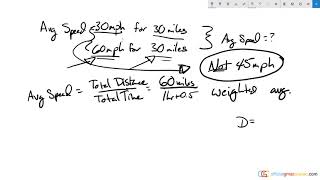 Avg Speed 30mph for 30 miles
60mph for 30 miles
Avg Speed = ?
Not 45mph
Avg Speed = Total Distance / Total Time = 60 miles / 1hr+0.5 weighted avg.
D=